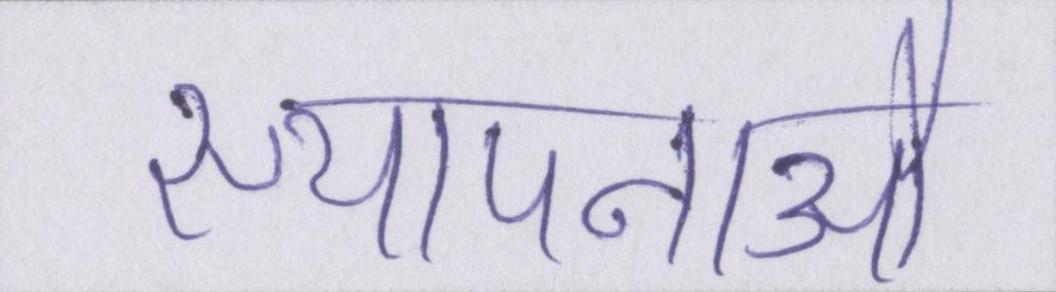 स्थापनाओ